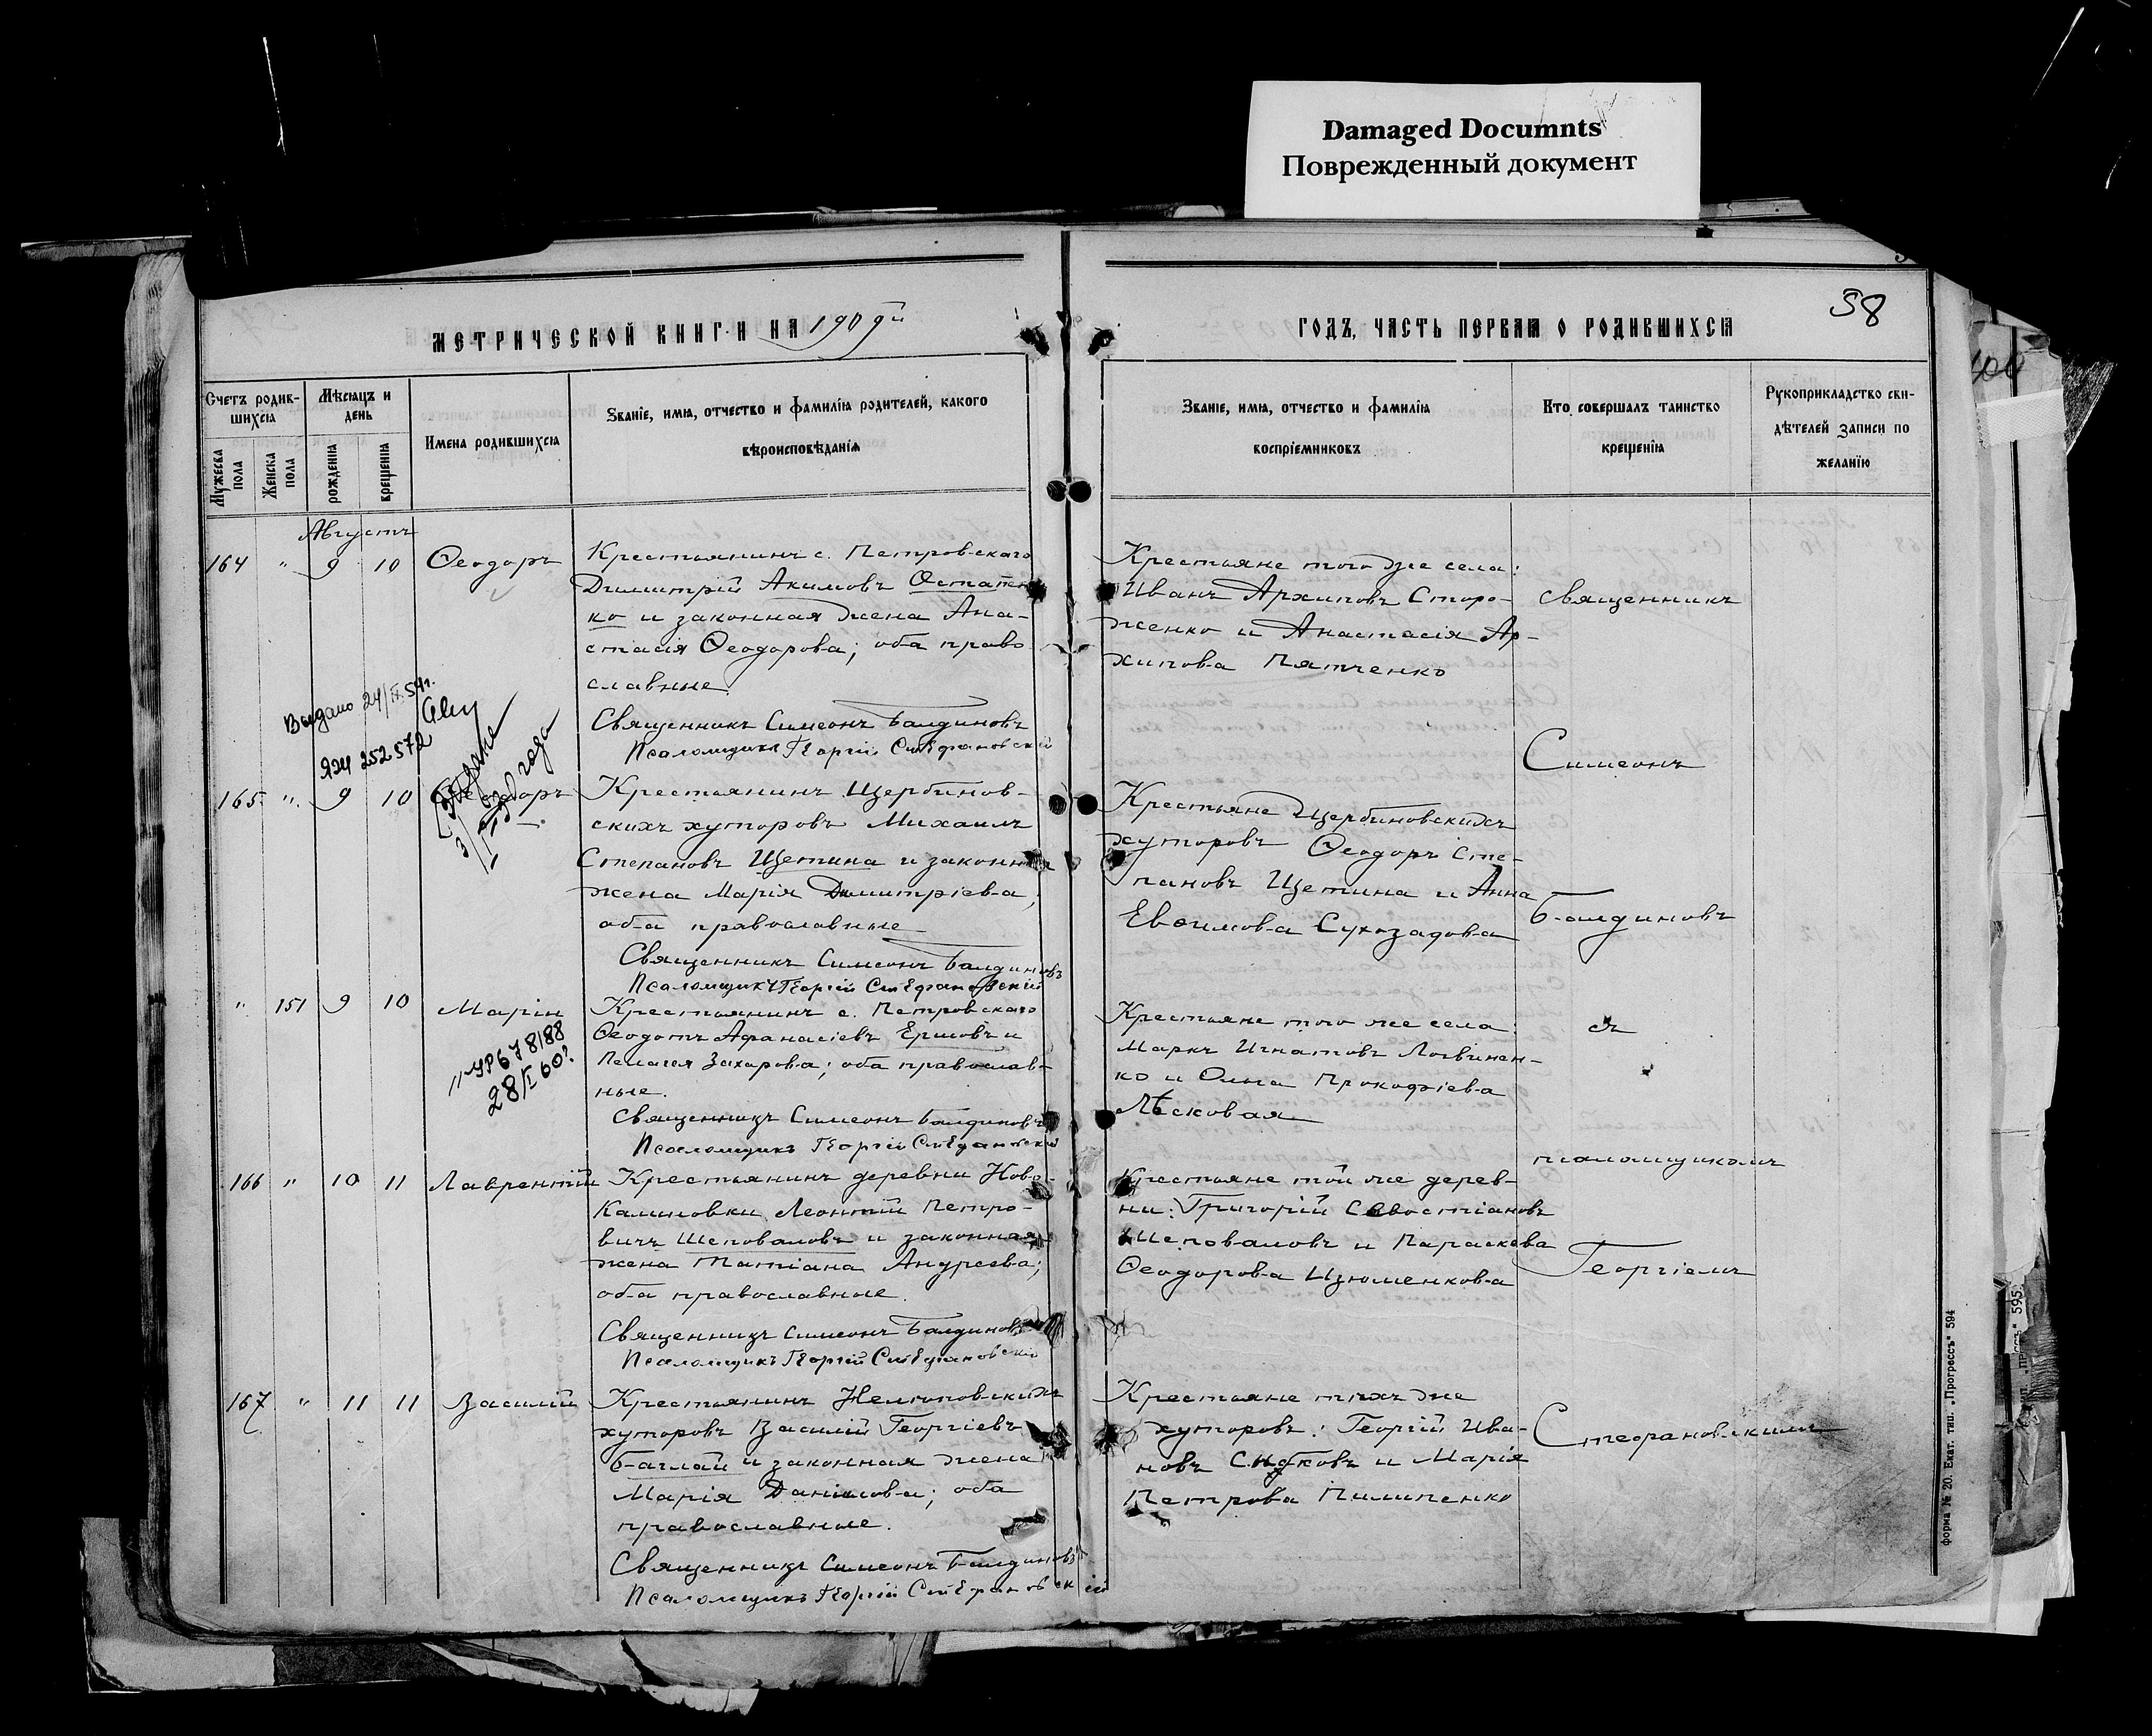 Damaged Documnts
Поврежденный документ
58
МЕТРИЧЕСКОЙ КНИГИ НА 1909й
ГОДЪ, ЧАСТЬ ПЕРВАЯ О РОДИВШИХСЯ
Счетъ родив-
шихся
Мѣсяцъ и
день
Мужеска
пола
Женска
пола
рожденія
крещенія
Имена родившихся
Званіе, имя, отчество и фамилія родителей, какого
вѣроисповѣданія
Званіе, имя, отчество и фамилія
воспріемниковъ
Кто совершалъ таинство
крещенія
Рукоприкладство сви-
дѣтелей записи по
желанію
Августъ
164 " 9 10 Ѳеодоръ
Крестьянинъ с. Петровскаго
Димитрій Акимовъ Остапен
ко и законная жена Ана-
стасія Ѳеодорова; оба право
славные.
Священникъ Симеонъ Балдиновъ
Псаломщикъ Георгій Стефановскій
Крестьяне того же села:
Иванъ Архиповъ Сторо-
женко и Анастасія Ар-
хипова Пятченко
священникъ
Симеонъ
Выдано 24/IX 54г.
252572
165 " 9 10 Ѳеодоръ
Крестьянинъ Щербинов-
скихъ хуторовъ Михаилъ
Степановъ Щетина и законная
жена Марія Димитріева,
оба православные
Священникъ Симеонъ Балдиновъ
Псаломщикъ Георгій Стефановскій
Крестьяне Щербиновскихъ
хуторовъ Ѳеодоръ Сте-
пановъ Щетина и Анна
Евѳимова Сухозадова
Балдиновъ
" 151 9 10 Марія
678188
28/I 60г.
Крестьянинъ с. Петровскаго
Ѳеодотъ Афанасіевъ Ершовъ и
Пелагея Захарова; оба православ-
ные.
Священникъ Симеонъ Балдиновъ
Псаломщикъ Георгій Стефановскій
Крестьяне того же села:
Маркъ Игнатовъ Логвинен-
ко и Ольга Прокофіева
Лѣсковая
съ
псаломщикомъ
166 " 10 11 Лаврентій
Крестьянинъ деревни Ново-
Калиновки Леонтій Петро-
вичъ Шеповаловъ и законная
жена Татіана Андреева;
оба православные.
Священникъ Симеонъ Балдиновъ
Псаломщикъ Георгій Стефановскій
Крестьяне той же дерев-
ни: Григорій Севостіановъ
Шеповаловъ и Параскева
Ѳеодорова Изюменкова
Георгіемъ
167 " 11 11 Василій
Крестьянинъ Нелюповскихъ
хуторовъ Василій Георгіевъ
Баглай и законная жена
Марія Данилова; оба
православные.
Священникъ Симеонъ Балдиновъ
Псаломщикъ Георгій Стефановскій
Крестьяне тѣхъ же
хуторовъ: Георгій Ива-
новъ и Марія
Петрова Пилипенко
Стефановскимъ
форма № 20. Екат. тип. „Прогрессъ" 594